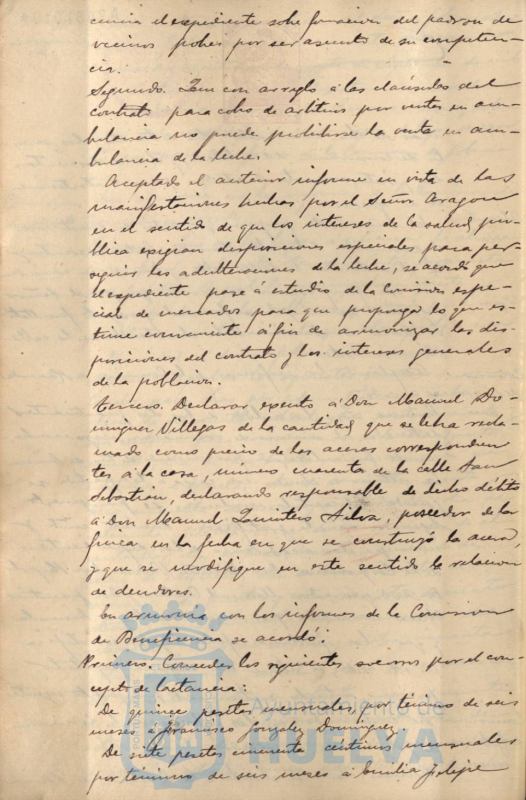 cencia el expediente sobre formacion del padron de
vecinos pobres por ser asunto de su competen-
cia.
Segundo. Que con arreglo á las claúsulas del
contrato para cobro de arbitrios por ventas en am-
bulancia no puede prohibirse la venta en am-
bulancia de la leche.
Aceptado el anterior informe en vista de las
manifestaciones hechas por el Señor Aragon
en el sentido de que los intereses de la salud pú-
blica exigian disposiciones especiales para per-
seguir las adulteraciones de la leche, se acordó que
el expediente pase á estudio de la Comision espe-
cial de mercados para que proponga lo que es-
time conveniente á fin de armonizar las dis-
posiciones del contrato y los intereses generales
de la poblacion.
Tercero. Declarar exento á Don Manuel Do-
minguez Villegas de la cantidad que se le ha recla-
mado como precio de las aceras correspondien
tes á la casa, número cuarenta de la calle San
Sebastián, declarando responsable de dicho débito
á Don Manuel Quintero Silva, poseedor de la
finca en la fecha en que se construyó la acera,
y que se modifique en este sentido la relacion
de deudores.
En armonia con los informes de la Comision
de Beneficencia se acordó:
Primero. Conceder los siguientes socorros por el con-
cepto de lactancia:
De quince pesetas mensuales, por término de seis
meses á Francisco Gonzalez Domínguez.
De siete pesetas cincuenta céntimos mensuales
por término de seis meses á Emilia Felipe
Ayuntamiento de
HUELVA